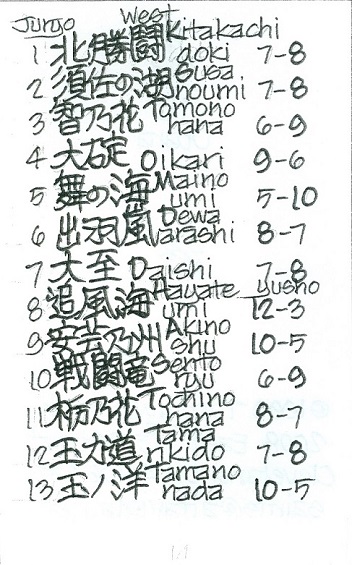 Juryo West
1 北勝鬨 Kitakachi doki 7-8
2 須佐の湖 Susa noumi 7-8
3 智乃花 Tomono hana 6-9
4 大碇 Oikari 9-6
5 舞の海 Maino umi 5-10
6 出羽嵐 Dewa arashi 8-7
7 大至 Daishi 7-8
8 追風海 Hayate umi yusho 12-3
9 安芸乃州 Akino shu 10-5
10 戦闘竜 Sento ryu 6-9
11 栃乃花 Tochino hana 8-7
12 玉力道 Tama rikido 7-8
13 玉ノ洋 Tamano nada 10-5